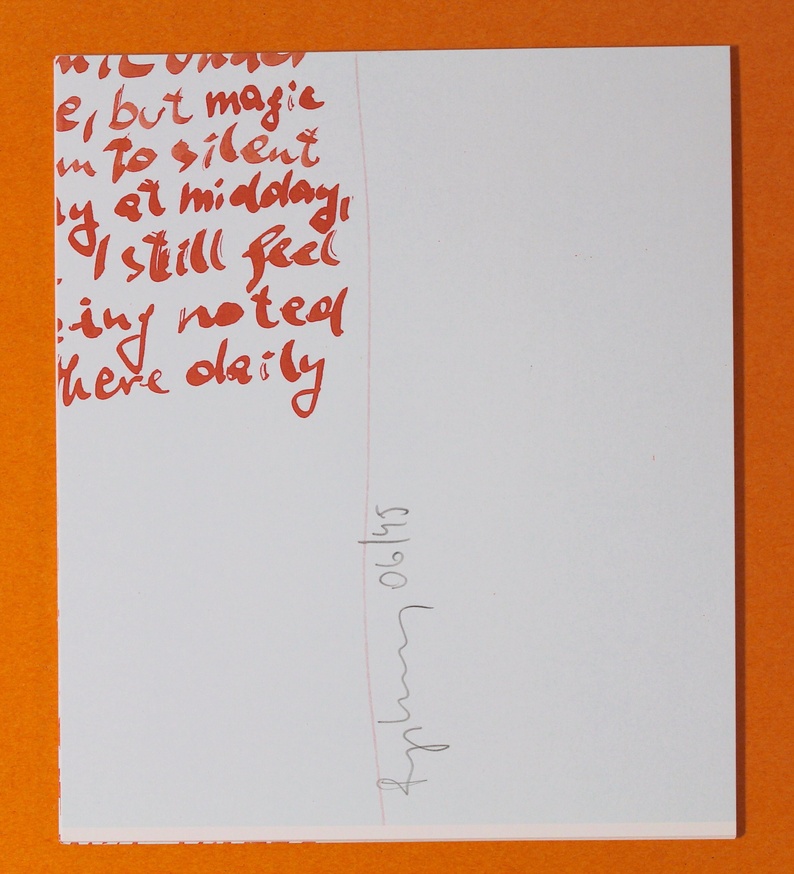 under
e, but magic
m to silent
ay at midday,
I still feel
eing noted
there daily
06/45